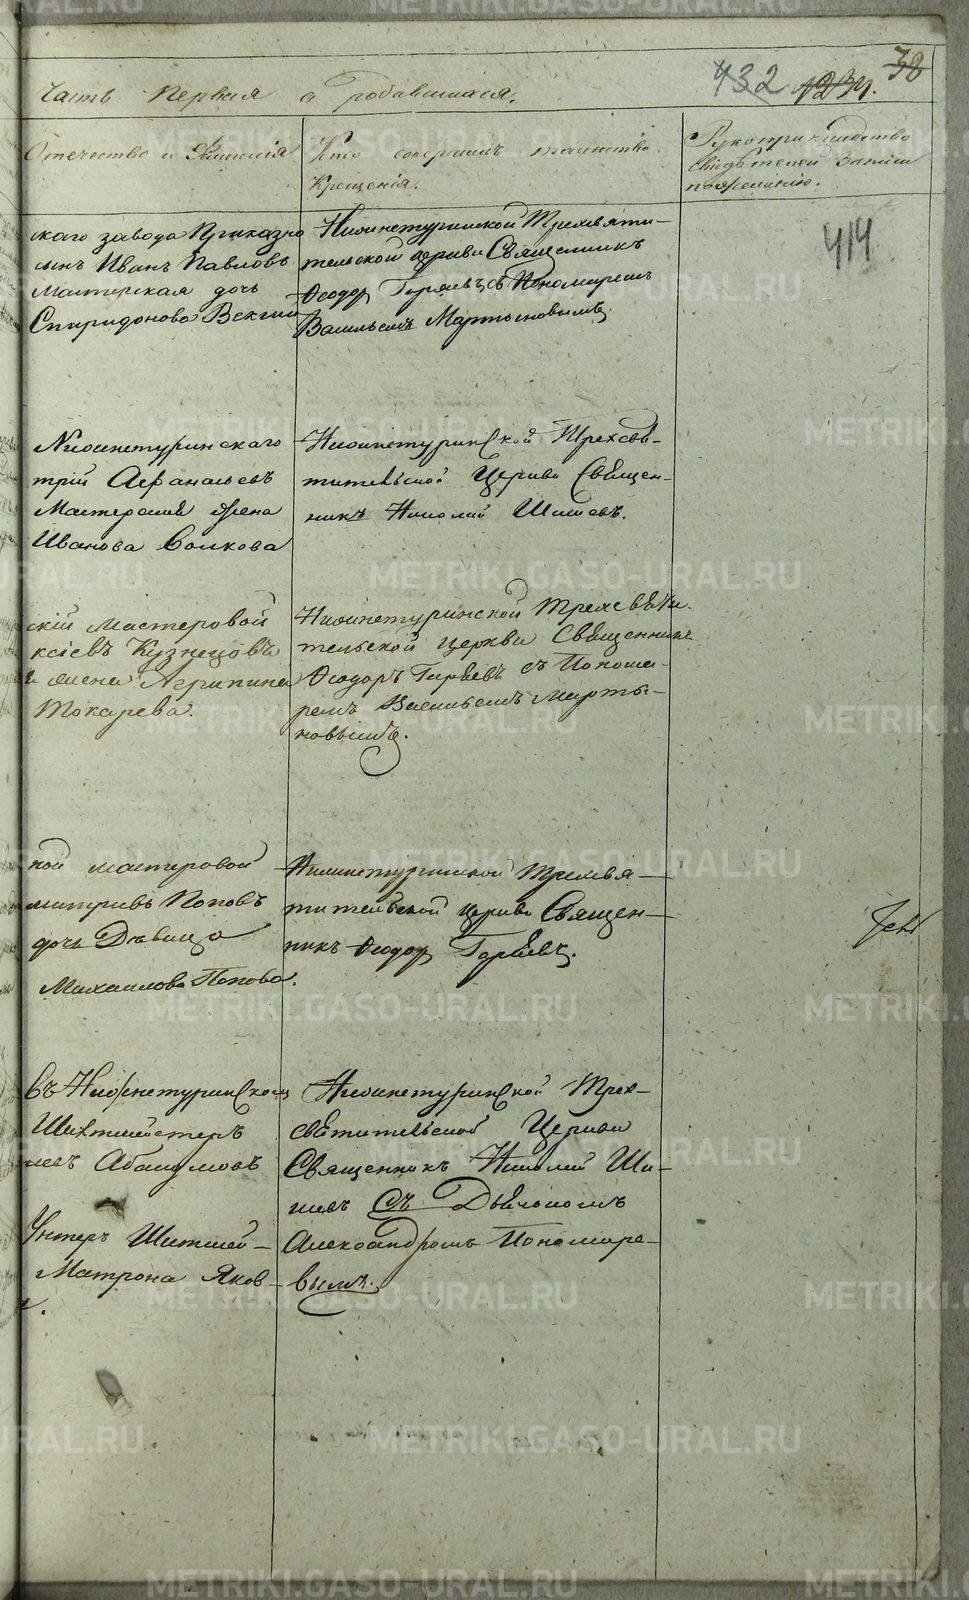 Часть первая о родившихся.
432 123ч. 38
Отечество и Фамилія
Кто совершилъ таинство
Крещенія.
Рукоприкладство
свидѣтелей записи
по желанію.
414
скаго завода Приказно
сынъ Иванъ Павловъ
Мастерская дочь
Спиридонова
Нижнетуринской Трехсвяти-
тельской церкви Священникъ
Ѳеодоръ Гаряевъ съ Пономаремъ
Васильемъ Мартыновымъ.
Нижнетуринскаго
трій Афанасьевъ
Мастерскій жена
Иванова Волкова
Нижнетуринской Трехсвя-
тительской Церкви Священ-
никъ Николай Шишевъ.
скій мастеровой
ксіевъ Кузнецовъ
и жена Агрипина
Токарева.
Нижнетуринской Трехсвѣти-
тельской церкви Священникъ
Ѳеодоръ Гаряевъ съ Понома-
ремъ Васильемъ Марты-
новымъ.
кой мастеровой
митріевъ Поповъ
дочь Дѣвица
Михаилова Попова.
Нижнетуринской Трехсвя-
тительской церкви Священ-
никъ Ѳеодоръ Гаряевъ.
въ Нижнетуринскомъ
Шихтмейстеръ
евъ Абакумовъ
Унтеръ Шихтмей-
Матрона Яков-
Нижнетуринской Трех-
свѣтительской Церкви
Священникъ Николай Ши-
шевъ Съ Дьякономъ
Александромъ Пономаре-
вымъ.
METRIKI.GASO-URAL.RU